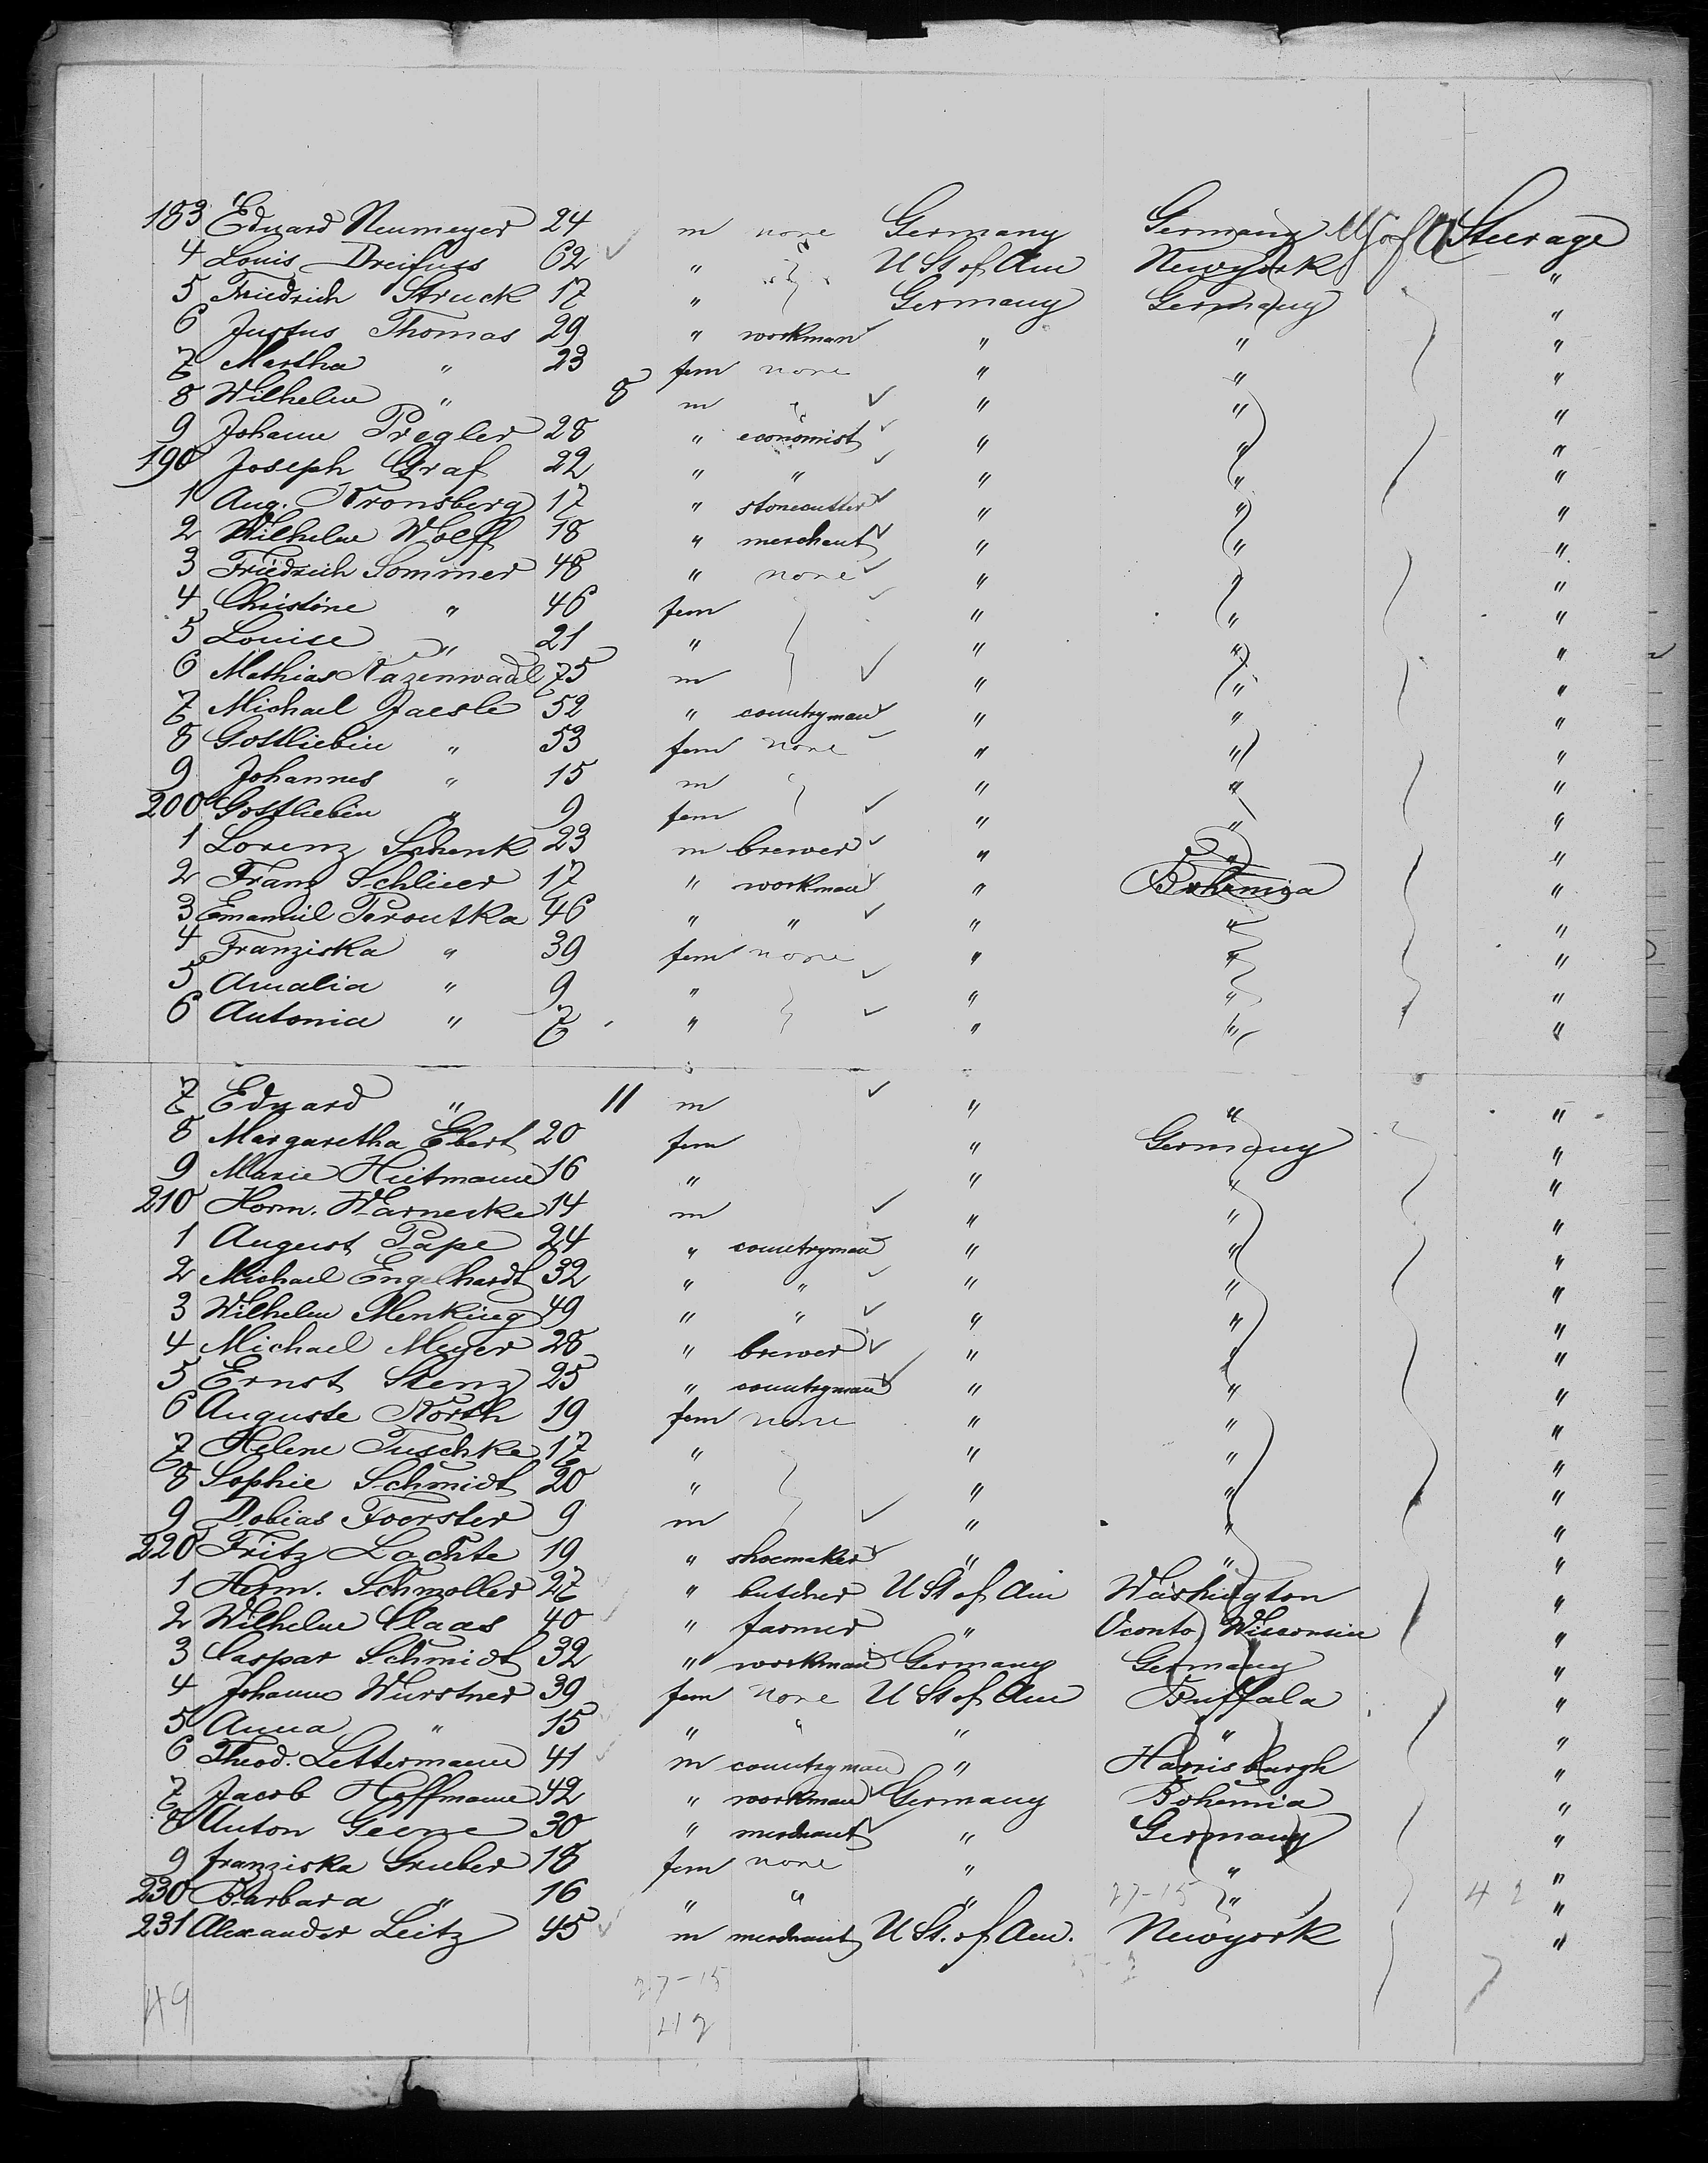 183 Eduard Neumeyer 24 m none Germany Germany U S of A Steerage
4 Louis Dreifuss 62 " " U St of Am Newyork "
5 Friedrich Struck 17 " Germany Germany "
6 Justus Thomas 29 " workman " " "
7 Martha " 23 fem none " " "
8 Wilhelm " 8 m " " " "
9 Johann Pregler 28 " economist " " "
190 Joseph Graf 22 " " " " "
1 Aug. Kronsberg 17 " stonecutter " " "
2 Wilhelm Wolff 18 " merchant " " "
3 Friedrich Sommer 48 " none " " "
4 Christine " 46 fem " " "
5 Louise " 21 " " " "
6 Mathias Nazenwadel 75 m " " "
7 Michael Jaesle 52 " countryman " " "
8 Gottliebin " 53 fem none " " "
9 Johannes " 15 m " " "
200 Gottliebin " 9 fem " " "
1 Lorenz Schenk 23 m brewer " " "
2 Franz Schlieer 17 " workman " Bohemia "
3 Emanuil Peroutka 46 " " " " "
4 Franziska " 39 fem none " " "
5 Amalia " 9 " " " "
6 Antonia " 7 " " " "
7 Eduard " 11 m " " "
8 Margaretha Ebert 20 fem " Germany "
9 Marie Hiitmann 16 " " " "
210 Herm. Warnecke 14 m " " "
1 August Pape 24 " countryman " " "
2 Michael Engelhardt 32 " " " " "
3 Wilhelm Menking 49 " " " " "
4 Michael Meyer 28 " brewer " " "
5 Ernst Stenz 25 " countryman " " "
6 Auguste North 19 fem none " " "
7 Helene Tuschke 17 " " " "
8 Sophie Schmidt 20 " " " "
9 Dobias Foerster 9 m " " "
220 Fritz Lochte 19 " shoemaker " " "
1 Herm. Schmoller 27 " butcher U St of Am Washington "
2 Wilhelm Claas 40 " farmer " Oconto Wisconsin "
3 Caspar Schmidt 32 " workman Germany Germany "
4 Johanna Wurstner 39 fem none U St of Am Buffala "
5 Anna " 15 " " " " "
6 Theod. Lettermann 41 m countryman " Harrisburgh "
7 Jacob Hoffmann 42 " workman Germany Bohemia "
8 Anton Geerre 30 " merchant " Germany "
9 franziska Gruber 18 fem none " " "
230 Barbara " 16 " " " 27-15 " 42 "
231 Alexander Leitz 45 m merchant U St. of Am. Newyork "
49 27-15 7
42